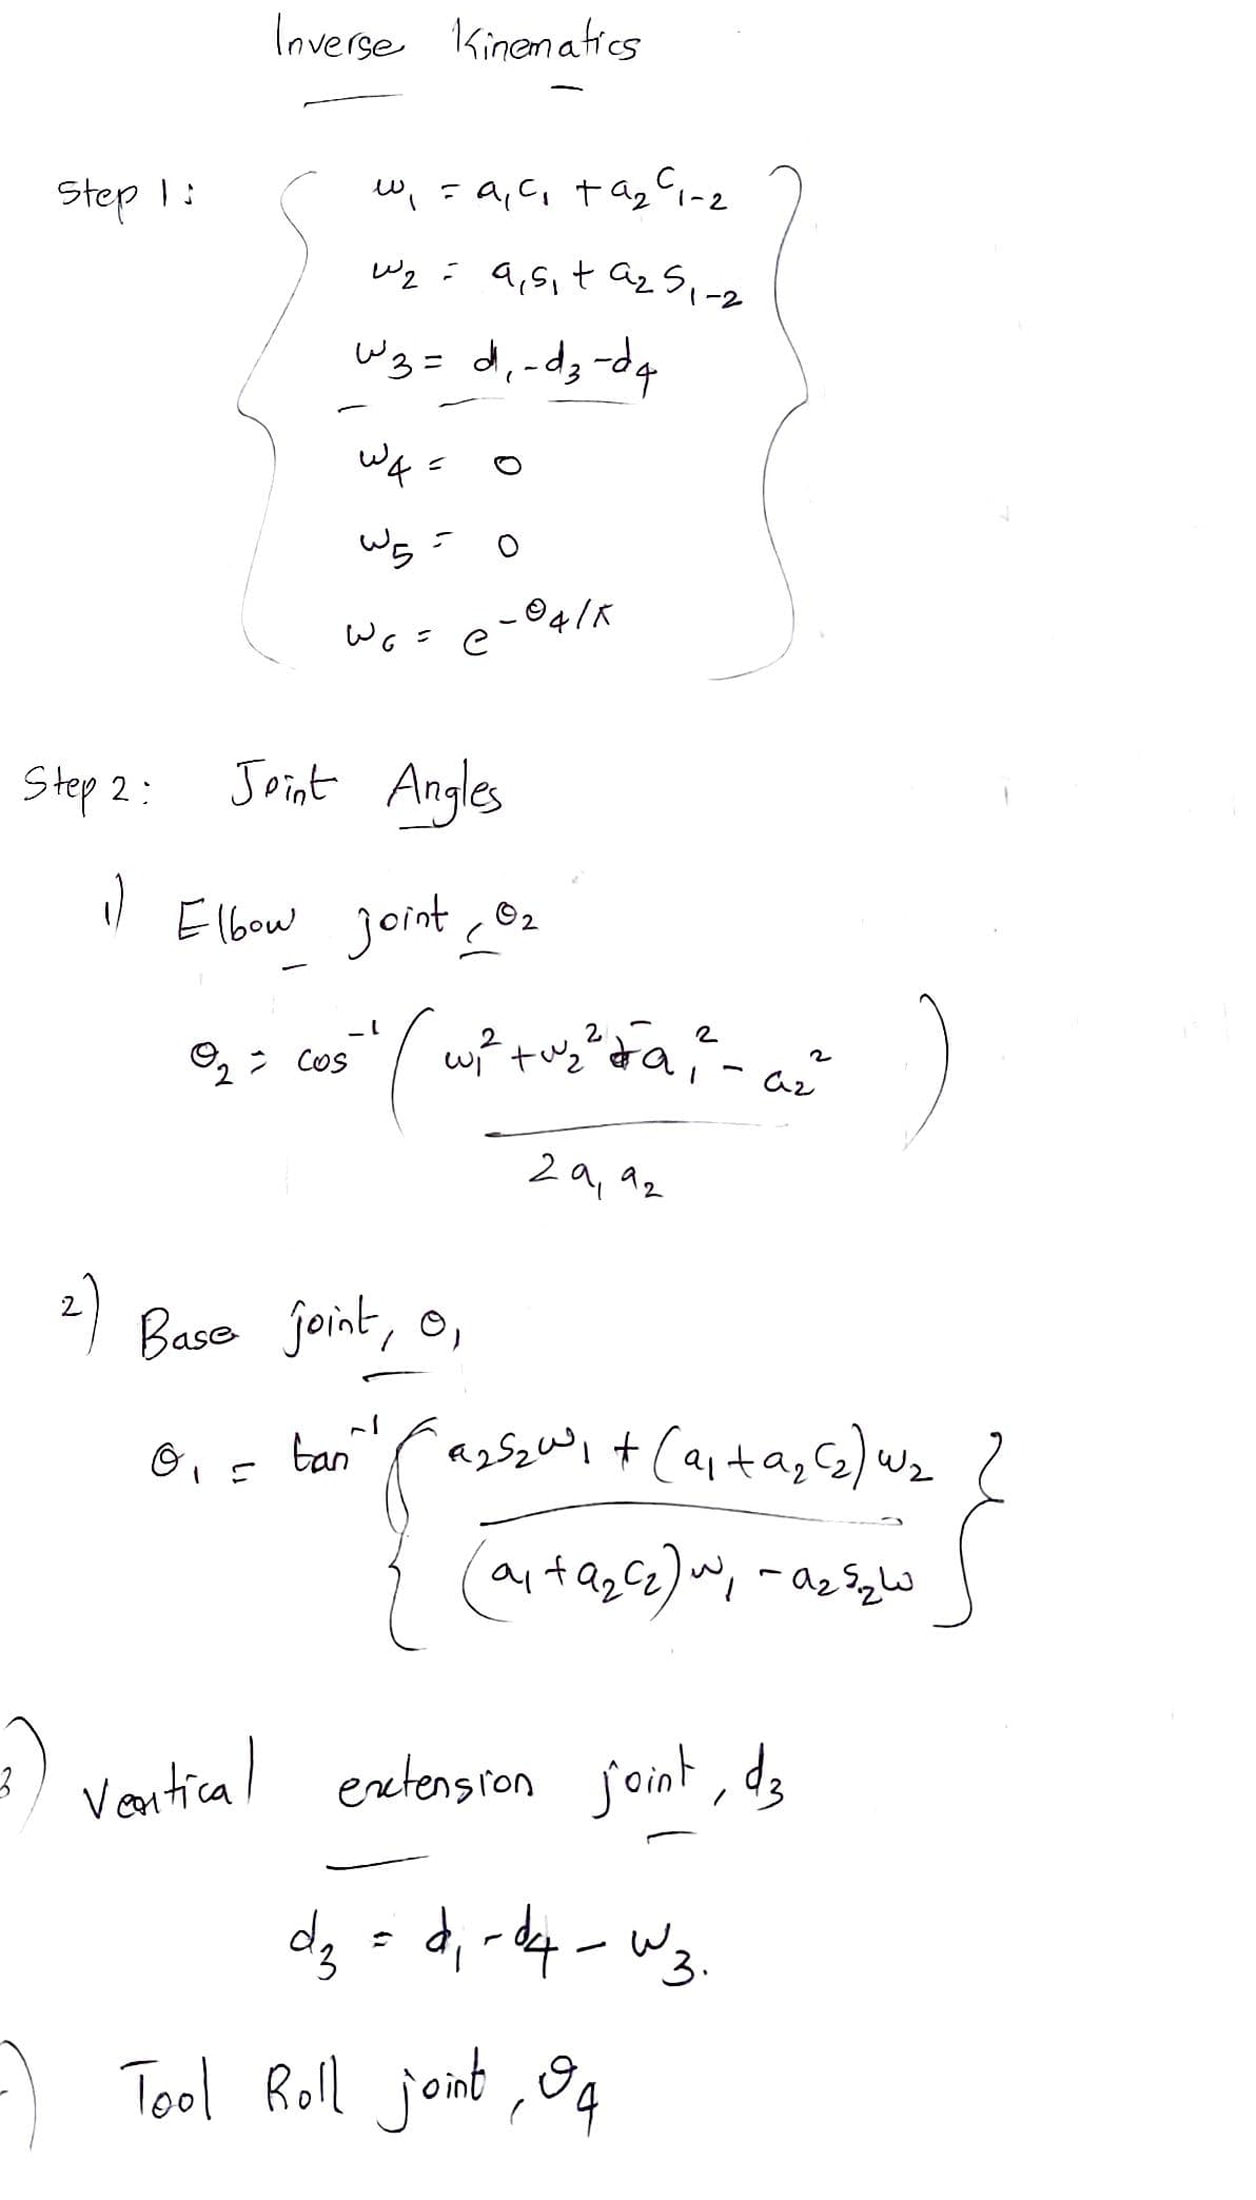 Inverse Kinematics
Step 1:
w₁ = a₁c₁ + a₂C₁₋₂
w₂ = a₁s₁ + a₂S₁₋₂
w₃ = d₁-d₃-d₄
w₄ = 0
w₅ = 0
w₆ = e^-θ₄/π
Step 2: Joint Angles
1) Elbow joint, θ₂
θ₂ = cos⁻¹ ( w₁² + w₂² - a₁² - a₂² )
2a₁ a₂
2) Base joint, θ₁
θ₁ = tan⁻¹ { a₂s₂w₁ + (a₁ + a₂C₂) w₂ }
(a₁ + a₂C₂) w₁ - a₂s₂w
3) Vertical extension joint, d₃
d₃ = d₁ - d₄ - w₃.
) Tool Roll joint, θ₄